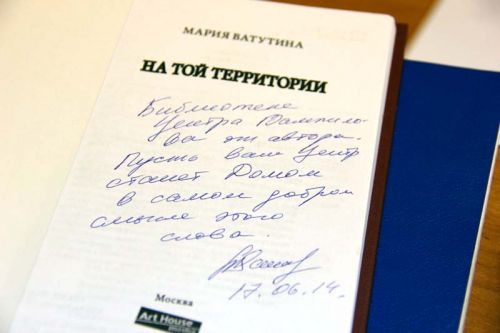 МАРИЯ ВАТУТИНА
НА ТОЙ ТЕРРИТОРИИ
Библиотеке
Центра Вампило-
ва от автора.
Пусть ваш Центр
станет Домом
в самом добром
смысле этого
слова.
17.06.14.
Москва
Art House